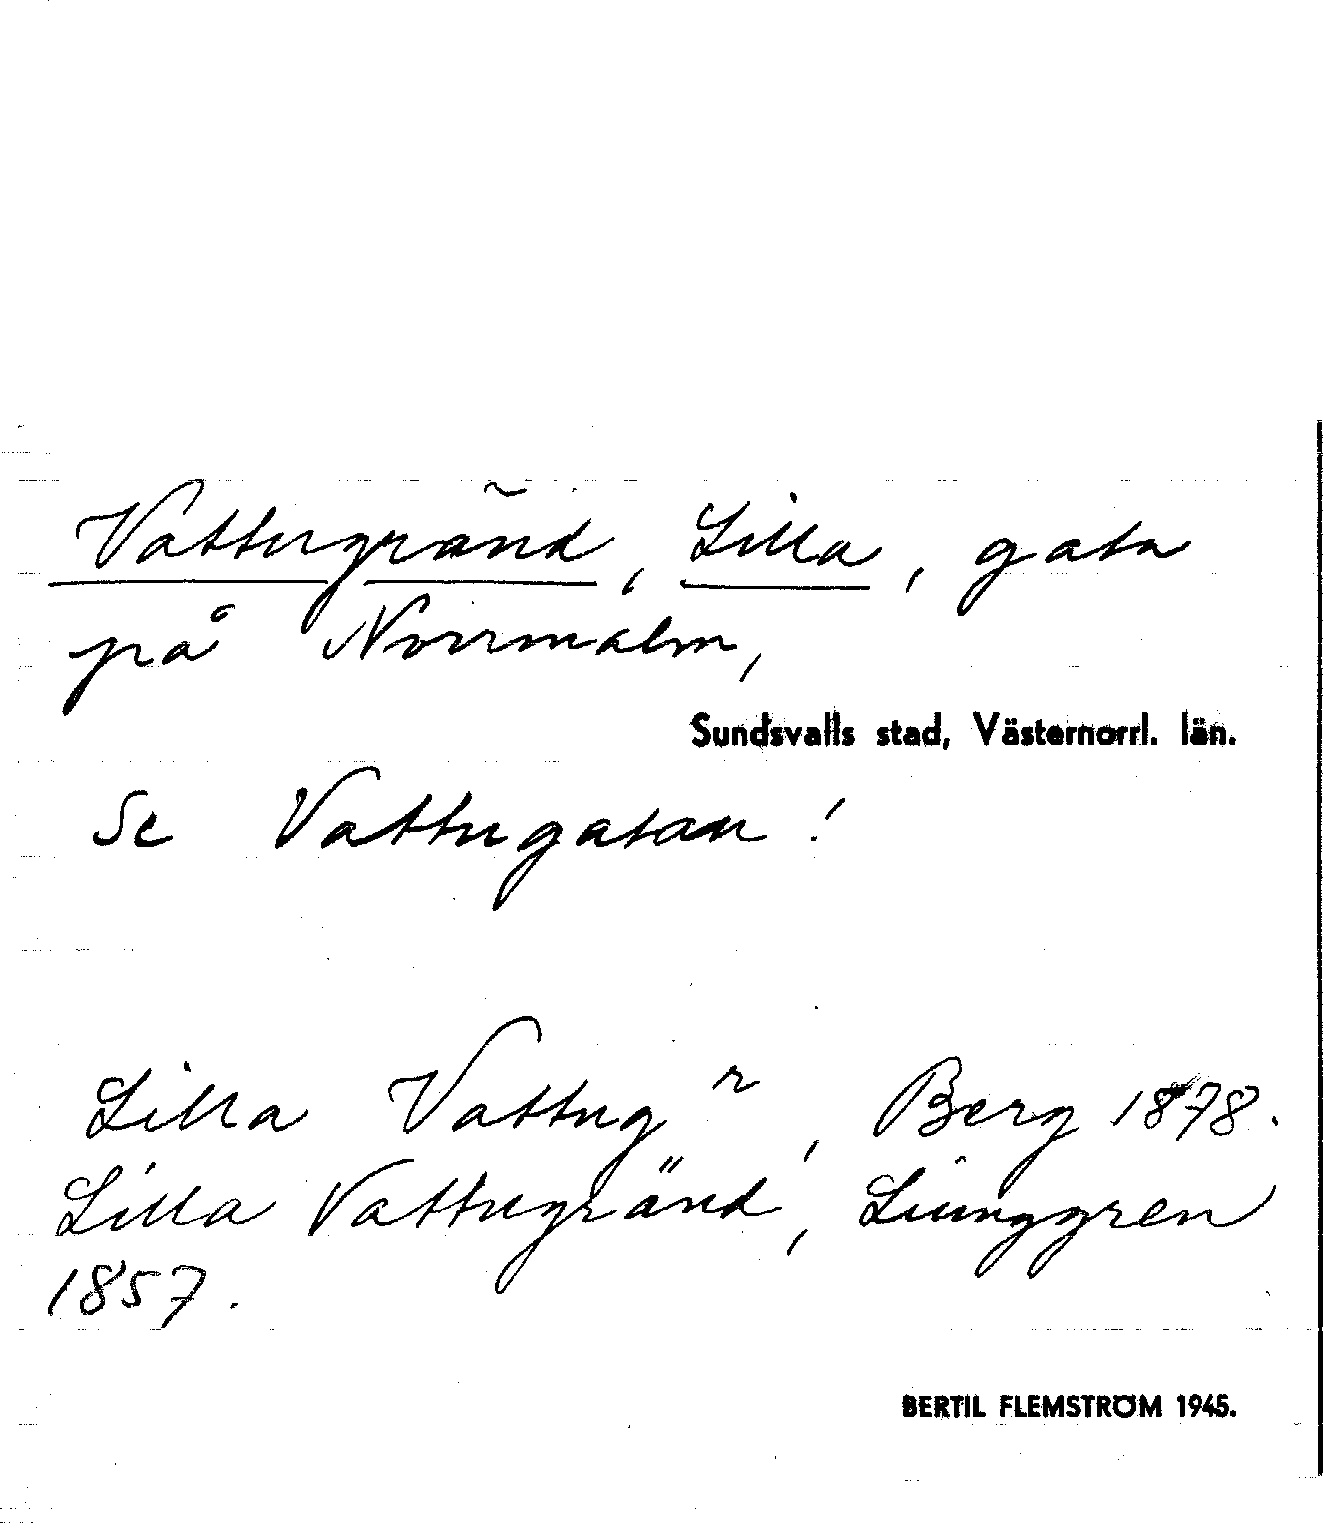 Vattugränd, Lilla, gata
på Norrmalm,
Sundsvalls stad, Västernorrl. län.
Se Vattugatan!
Lilla Vattugr, Berg 1878.
Lilla Vattugränd, Ljunggren
1857.
BERTIL FLEMSTRÖM 1945.